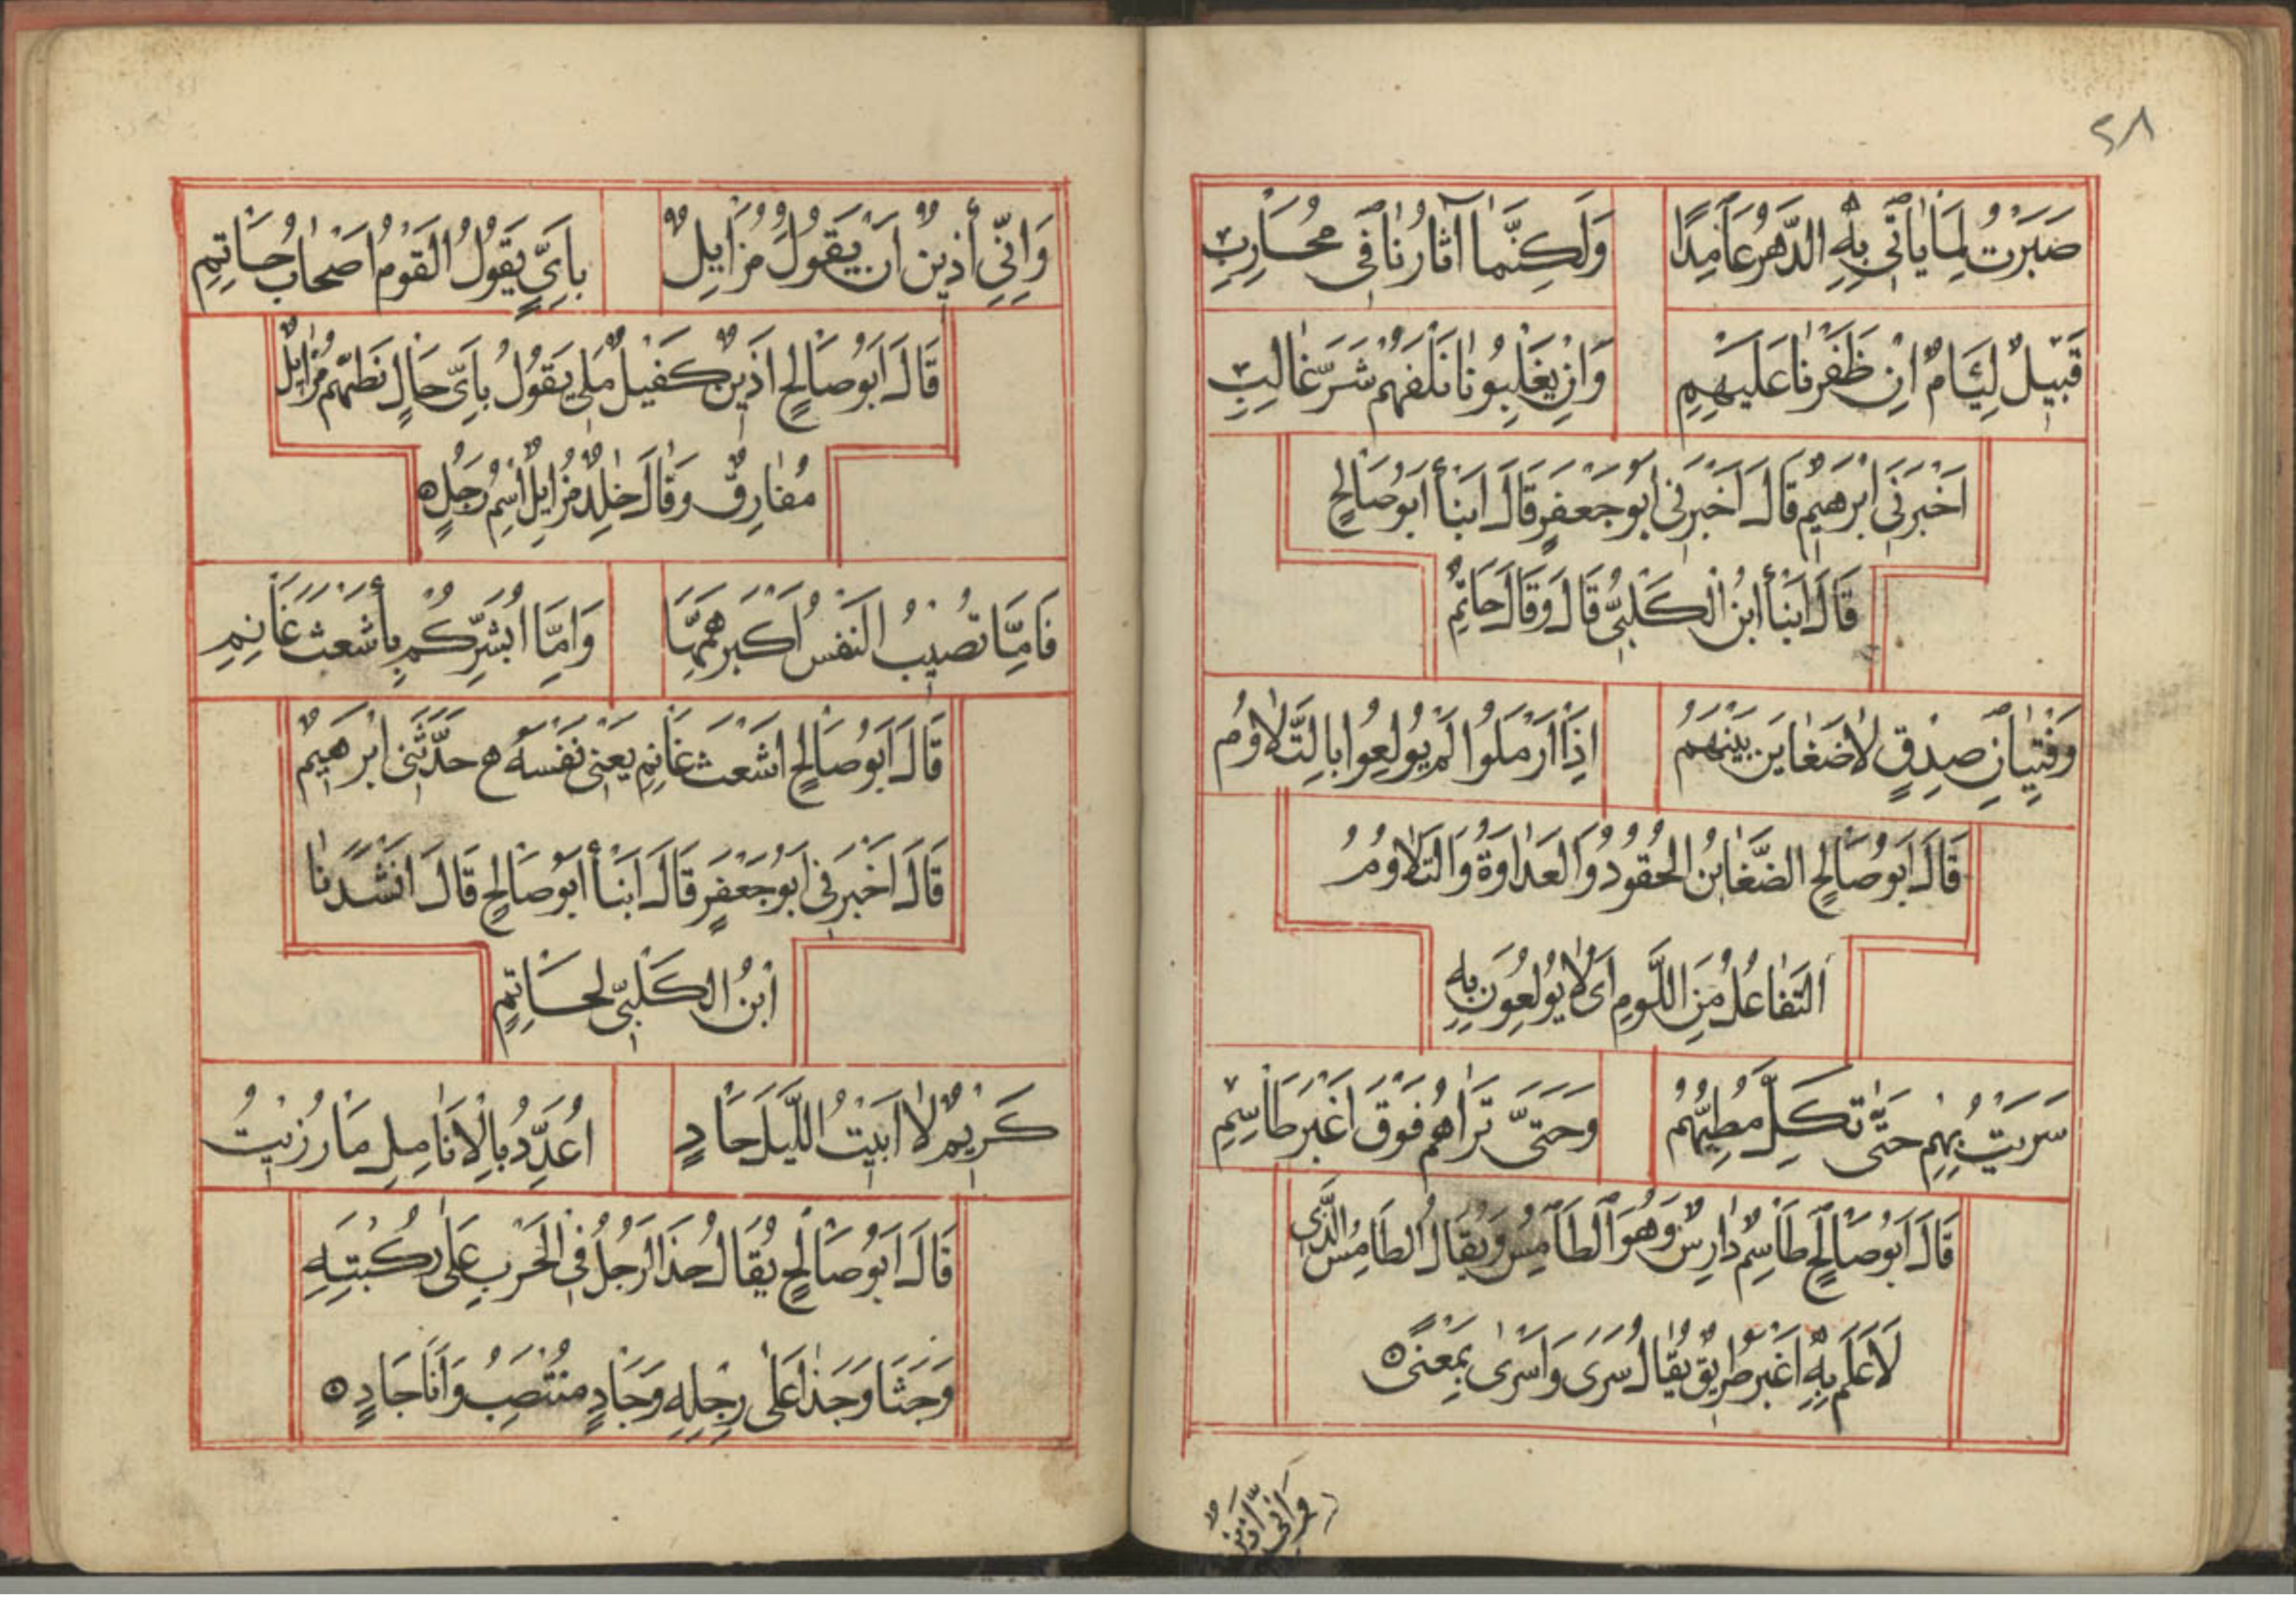 ٢٨
صَبَرْتُ لِمَا يَاتَى بِهِ الدَّهْرُ عَامِدًا وَلَكِنَّمَا آثَارُنَا فِى مُحَارِبِ
قَبِيلٌ لِئَامٌ اِنْ ظَفَرْنَا عَلَيْهِمِ وَاِنْ يَغْلِبُونَا نَلْفَهُمْ شَرَّ غَالِبِ
اَخْبَرَنَى اِبْرَهِيمُ قَالَ اَخْبَرَنِى اَبُو جَعْفَرٍ قَالَ اَنْبَأَ اَبُو صَالِحٍ
قَالَ اَنْبَأَ ابْنُ الْكَلْبِىِّ قَالَ وَقَالَ حَاتِمٌ
وَفِتْيَانِ صِدْقٍ لَا ضَغَايِنَ بَيْنَهُمْ اِذَا اَرْمَلُوا لَمْ يُولَعُوا بِالتَّلَاوُمِ
قَالَ اَبُو صَالِحٍ الضَّغَايِنُ الْحُقُودُ وَالْعَدَاوَةُ وَالتَّلَاوُمُ
التَّفَاعُلُ مِنَ اللَّوْمِ اَىْ لَا يُولَعُونَ بِهِ
سَرَيْتُ بِهِمْ حَتَّى تَكِلَّ مَطِيُّهُمْ وَحَتَّى تَرَاهُمْ فَوْقَ اَغْبَرَ طَاسِمِ
قَالَ اَبُو صَالِحٍ طَاسِمٌ دَارِسٌ وَهُوَ الطَّامِسُ وَيُقَالُ الطَّامِسُ الَّذِى
لَا عَلَمَ بِهِ اَغْبَرُ طَرِيقٌ يُقَالُ سَرَى وَاَسْرَى بِمَعْنًى ۞
وَاِنِّى اَذِينٌ
وَاِنِّى أَذِينٌ اَنْ يَقُولُ مُزَايِلٌ بِاَيِّ يَقُولُ الْقَوْمُ اَصْحَابُ حَاتِمِ
قَالَ اَبُو صَالِحٍ اَذِينٌ كَفِيلٌ مَلِى يَقُولُ بِاَىِّ حَالٍ نَظُنُّهُمْ مُزَايِلٌ
مُفَارِقٌ وَقَالَ خَلِدٌ مُزَايِلٌ اسْمُ رَجُلٍ ۞
فَامَّا تُصِيبُ النَّفْسُ اَكْبَرَ هَمِّهَا وَاِمَّا اُبَشِّرْكُمْ بِأَشْعَثَ غَانِمِ
قَالَ اَبُو صَالِحٍ اَشْعَثَ غَانِمِ يَعْنِى نَفْسَهُ ه حَدَّثَنِى اِبْرَهِيمٌ
قَالَ اَخْبَرَنِى اَبُو جَعْفَرٍ قَالَ اَنْبَأَ اَبُو صَالِحٍ قَالَ اَنْشَدَنَا
ابْنُ الْكَلْبِىِّ لِحَاتِمٍ
كَرِيمٌ لَا اَبِيْتُ اللَّيْلَ جَادٍ اُعَدِّدُ بِالْاَنَامِلِ مَا رُزِيْتُ
قَالَ اَبُو صَالِحٍ يُقَالُ جَذَا الرَّجُلُ فِى الْحَرْبِ عَلَى رُكْبَتِهِ
وَجَثَا وَجَذَا عَلَى رِجْلِهِ وَجَادٍ مُنْتَصِبُ وَاَنَا جَادٍ ۞